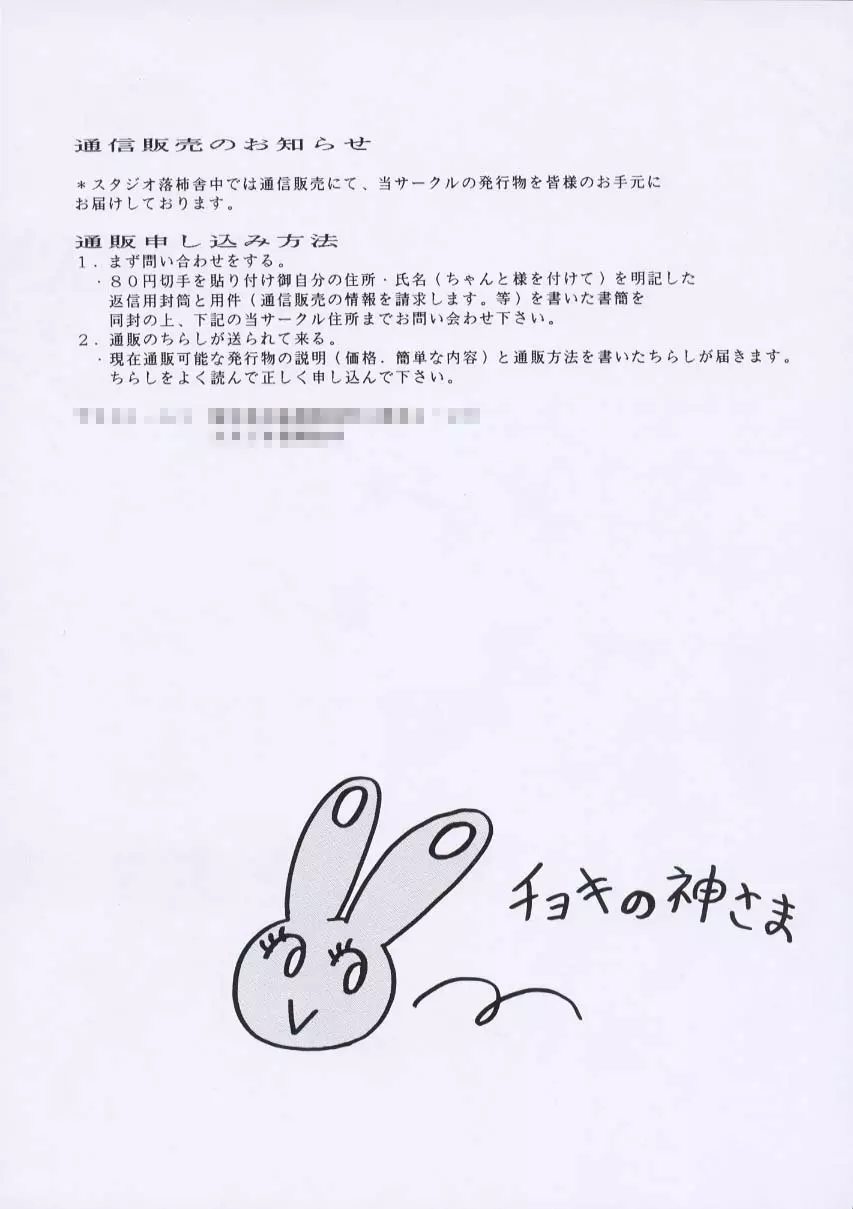 通信販売のお知らせ
*スタジオ落柿舎中では通信販売にて、当サークルの発行物を皆様のお手元に
お届けしております。
通販申し込み方法
1.まず問い合わせをする。
・80円切手を貼り付け御自分の住所・氏名(ちゃんと様を付けて)を明記した
返信用封筒と用件(通信販売の情報を請求します。等)を書いた書簡を
同封の上、下記の当サークル住所までお問い会わせ下さい。
2.通販のちらしが送られて来る。
・現在通販可能な発行物の説明(価格.簡単な内容)と通販方法を書いたちらしが届きます。
ちらしをよく読んで正しく申し込んで下さい。
チョキの神さま